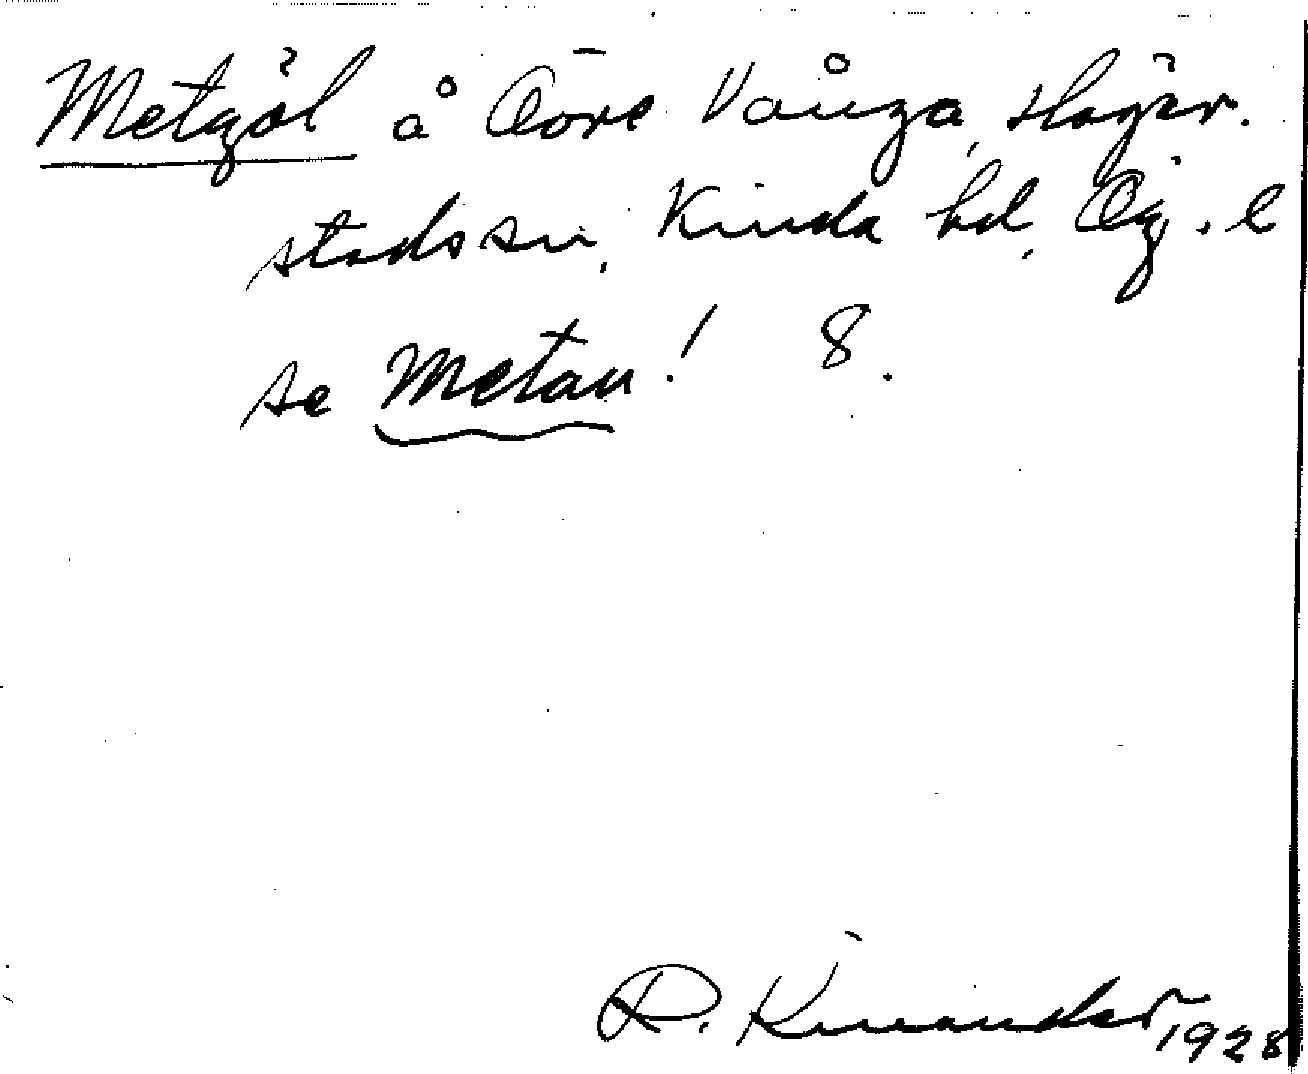 Metgöl å Övre Vånga, Häger-
stads sn, Kinda hd, Ög. l
se Metan! 8.
R. Kinander 1928